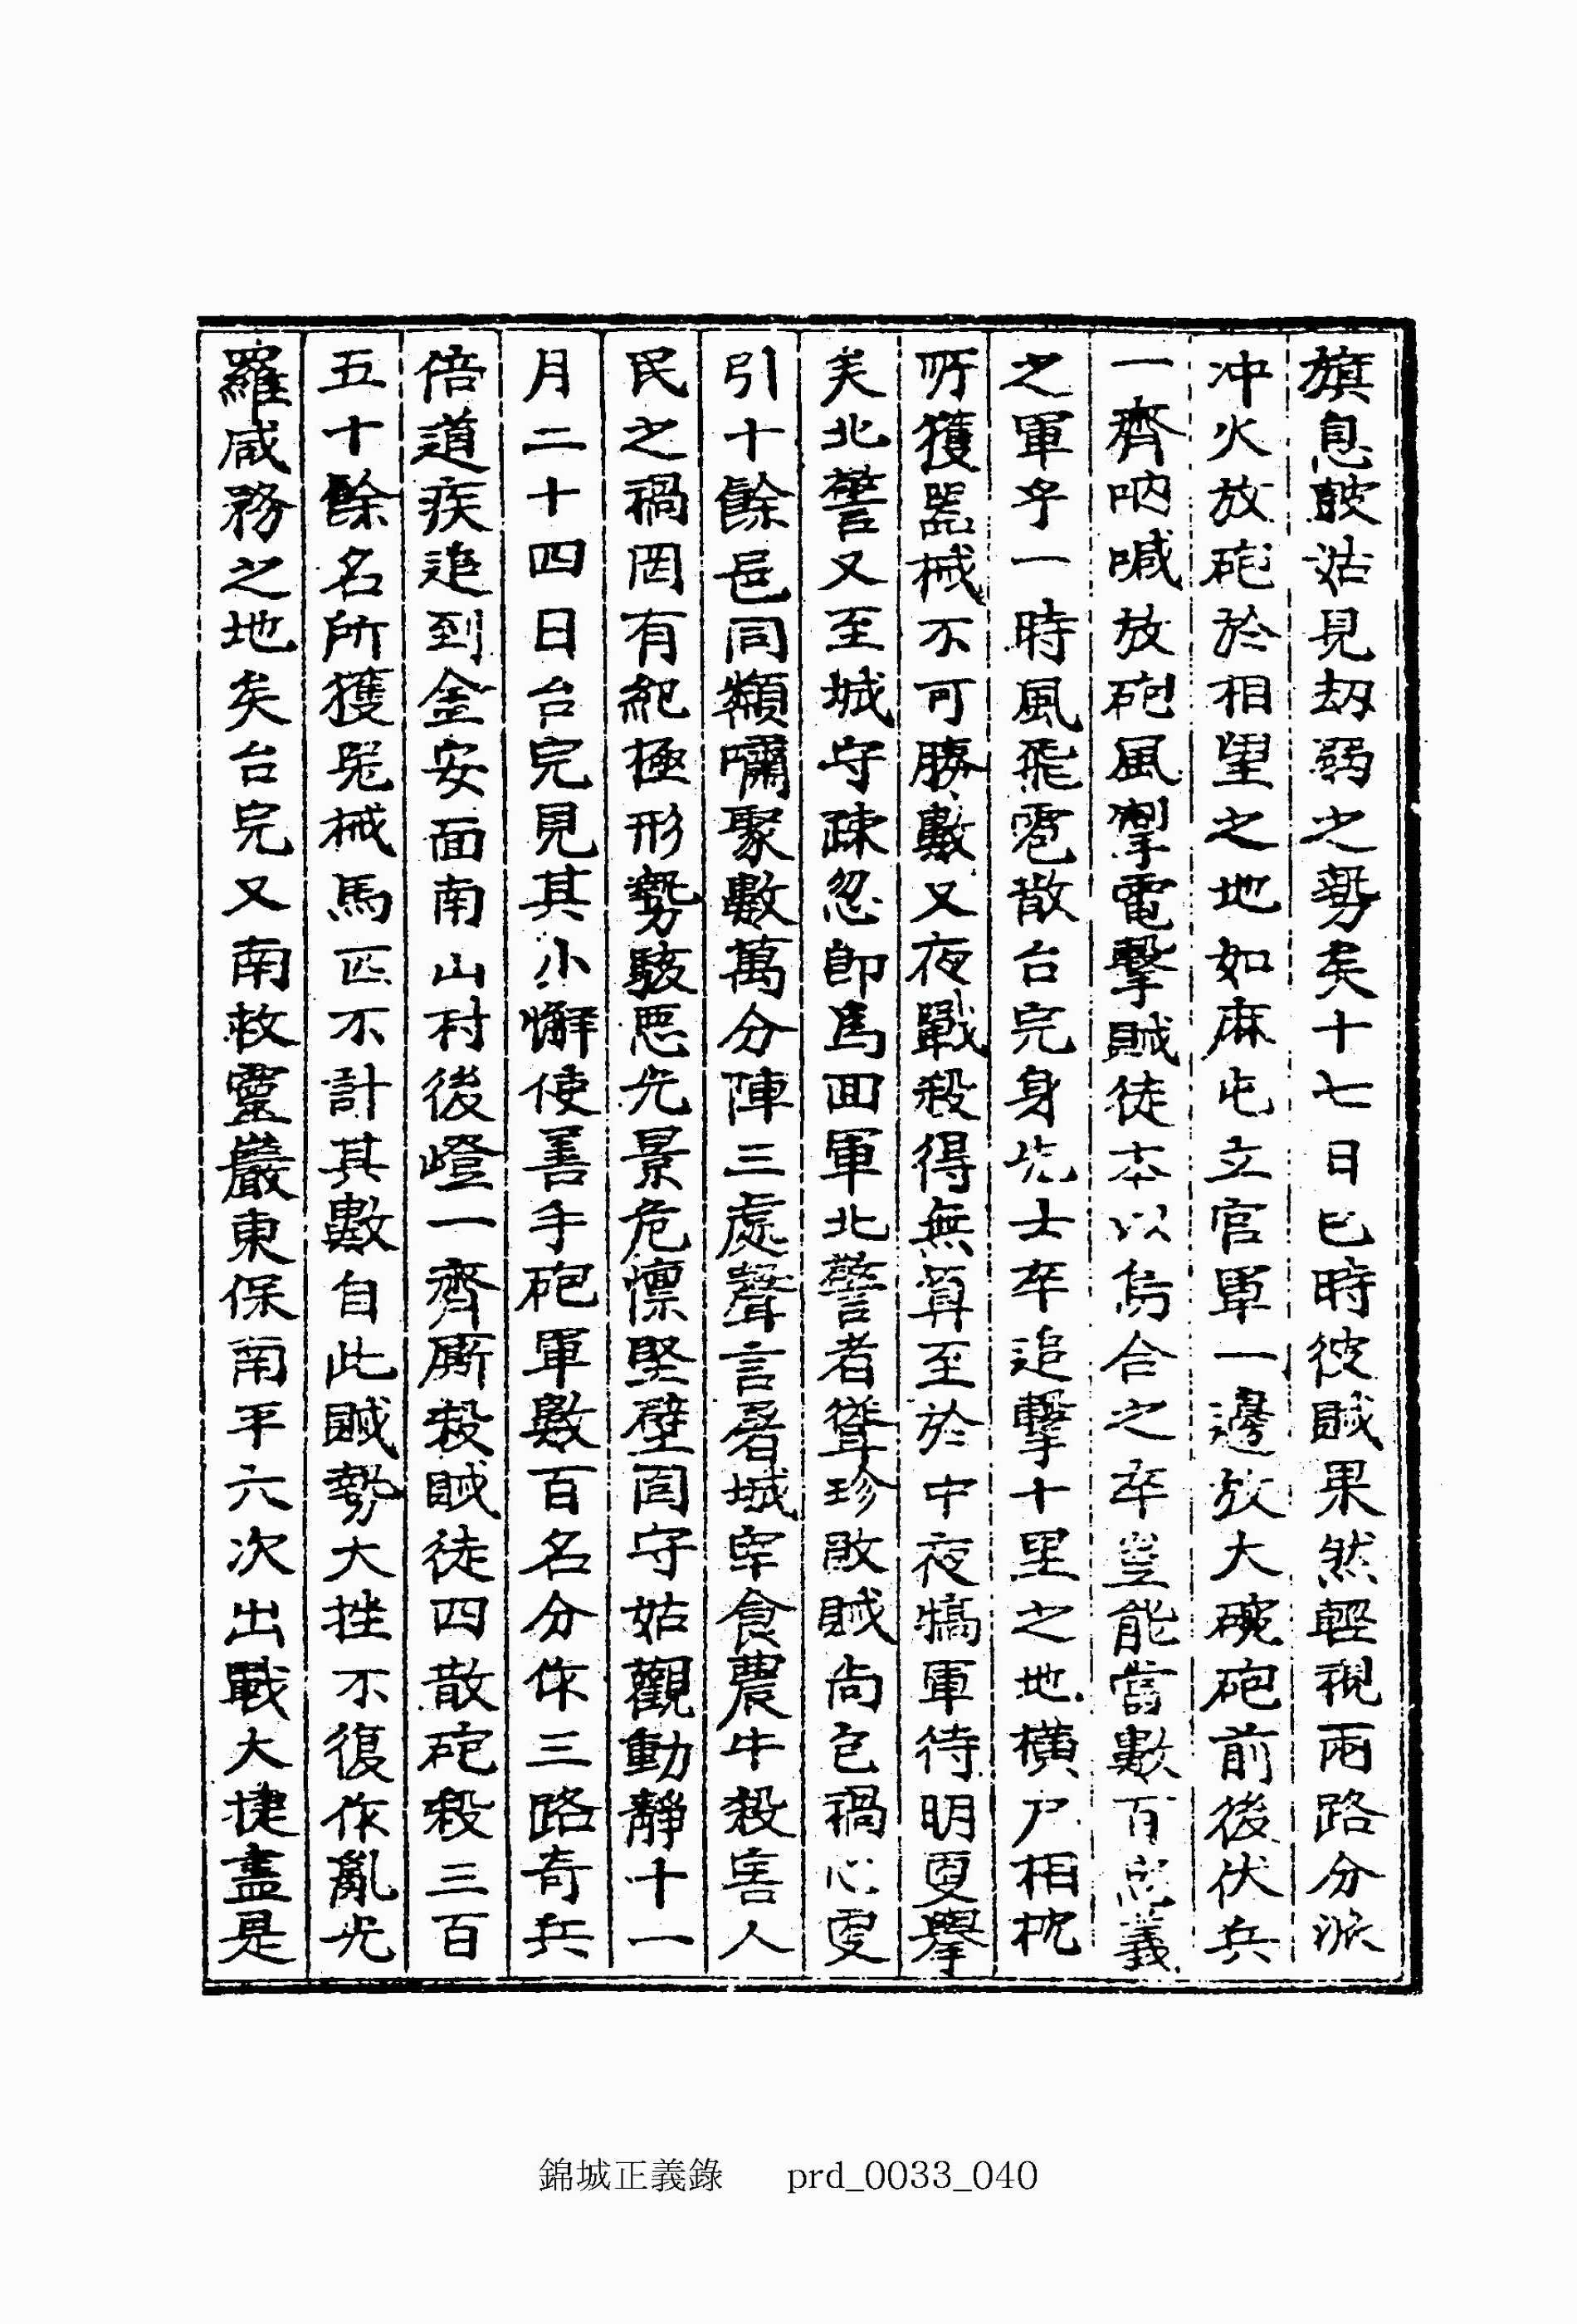 旗息鼓沽見劫弱之勢矣十七日巳時彼賊果然輕視兩路分派
冲火放砲於相望之地如麻屯立官軍一邊放大碗砲前後伏兵
一齊吶喊放砲風掣電擊賊徒本以烏合之卒豈能當數百忠義
之軍乎一時風飛雹散台完身先士卒追擊十里之地橫尸相枕
所獲器械不可勝數又夜戰殺得無算至於中夜犒軍待明更擧
矣北警又至城守疎忽卽爲回軍北警者聳珍敗賊尙包禍心更
引十餘邑同類嘯聚數萬分陣三處聲言屠城宰食農牛殺害人
民之禍罔有紀極形勢駭惡光景危懍堅壁固守姑觀動靜十一
月二十四日台完見其小懈使善手砲軍數百名分作三路奇兵
倍道疾追到金安面南山村後嶝一齊厮殺賊徒四散砲殺三百
五十餘名所獲兵械馬匹不計其數自此賊勢大挫不復作亂光
羅咸務之地矣台完又南救靈巖東保南平六次出戰大捷盡是
錦城正義錄 prd_0033_040